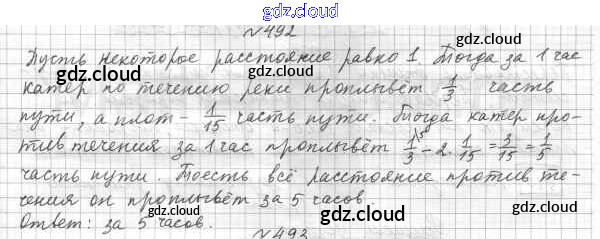 gdz.cloud
№492
gdz.cloud
Пусть некоторое расстояние равно 1. Тогда за 1 час
gdz.cloud gdz.cloud
катер по течению реки проплывёт 1/3 часть
пути, а плот - 1/15 часть пути. Тогда катер про-
gdz.cloud gdz.cloud
тив течения за 1 час проплывёт 1/3 - 2 · 1/15 = 3/15 = 1/5
часть пути. Тоесть всё расстояние против те-
gdz.cloud gdz.cloud
чения он проплывёт за 5 часов.
Ответ: за 5 часов.
gdz.cloud gdz.cloud
№493